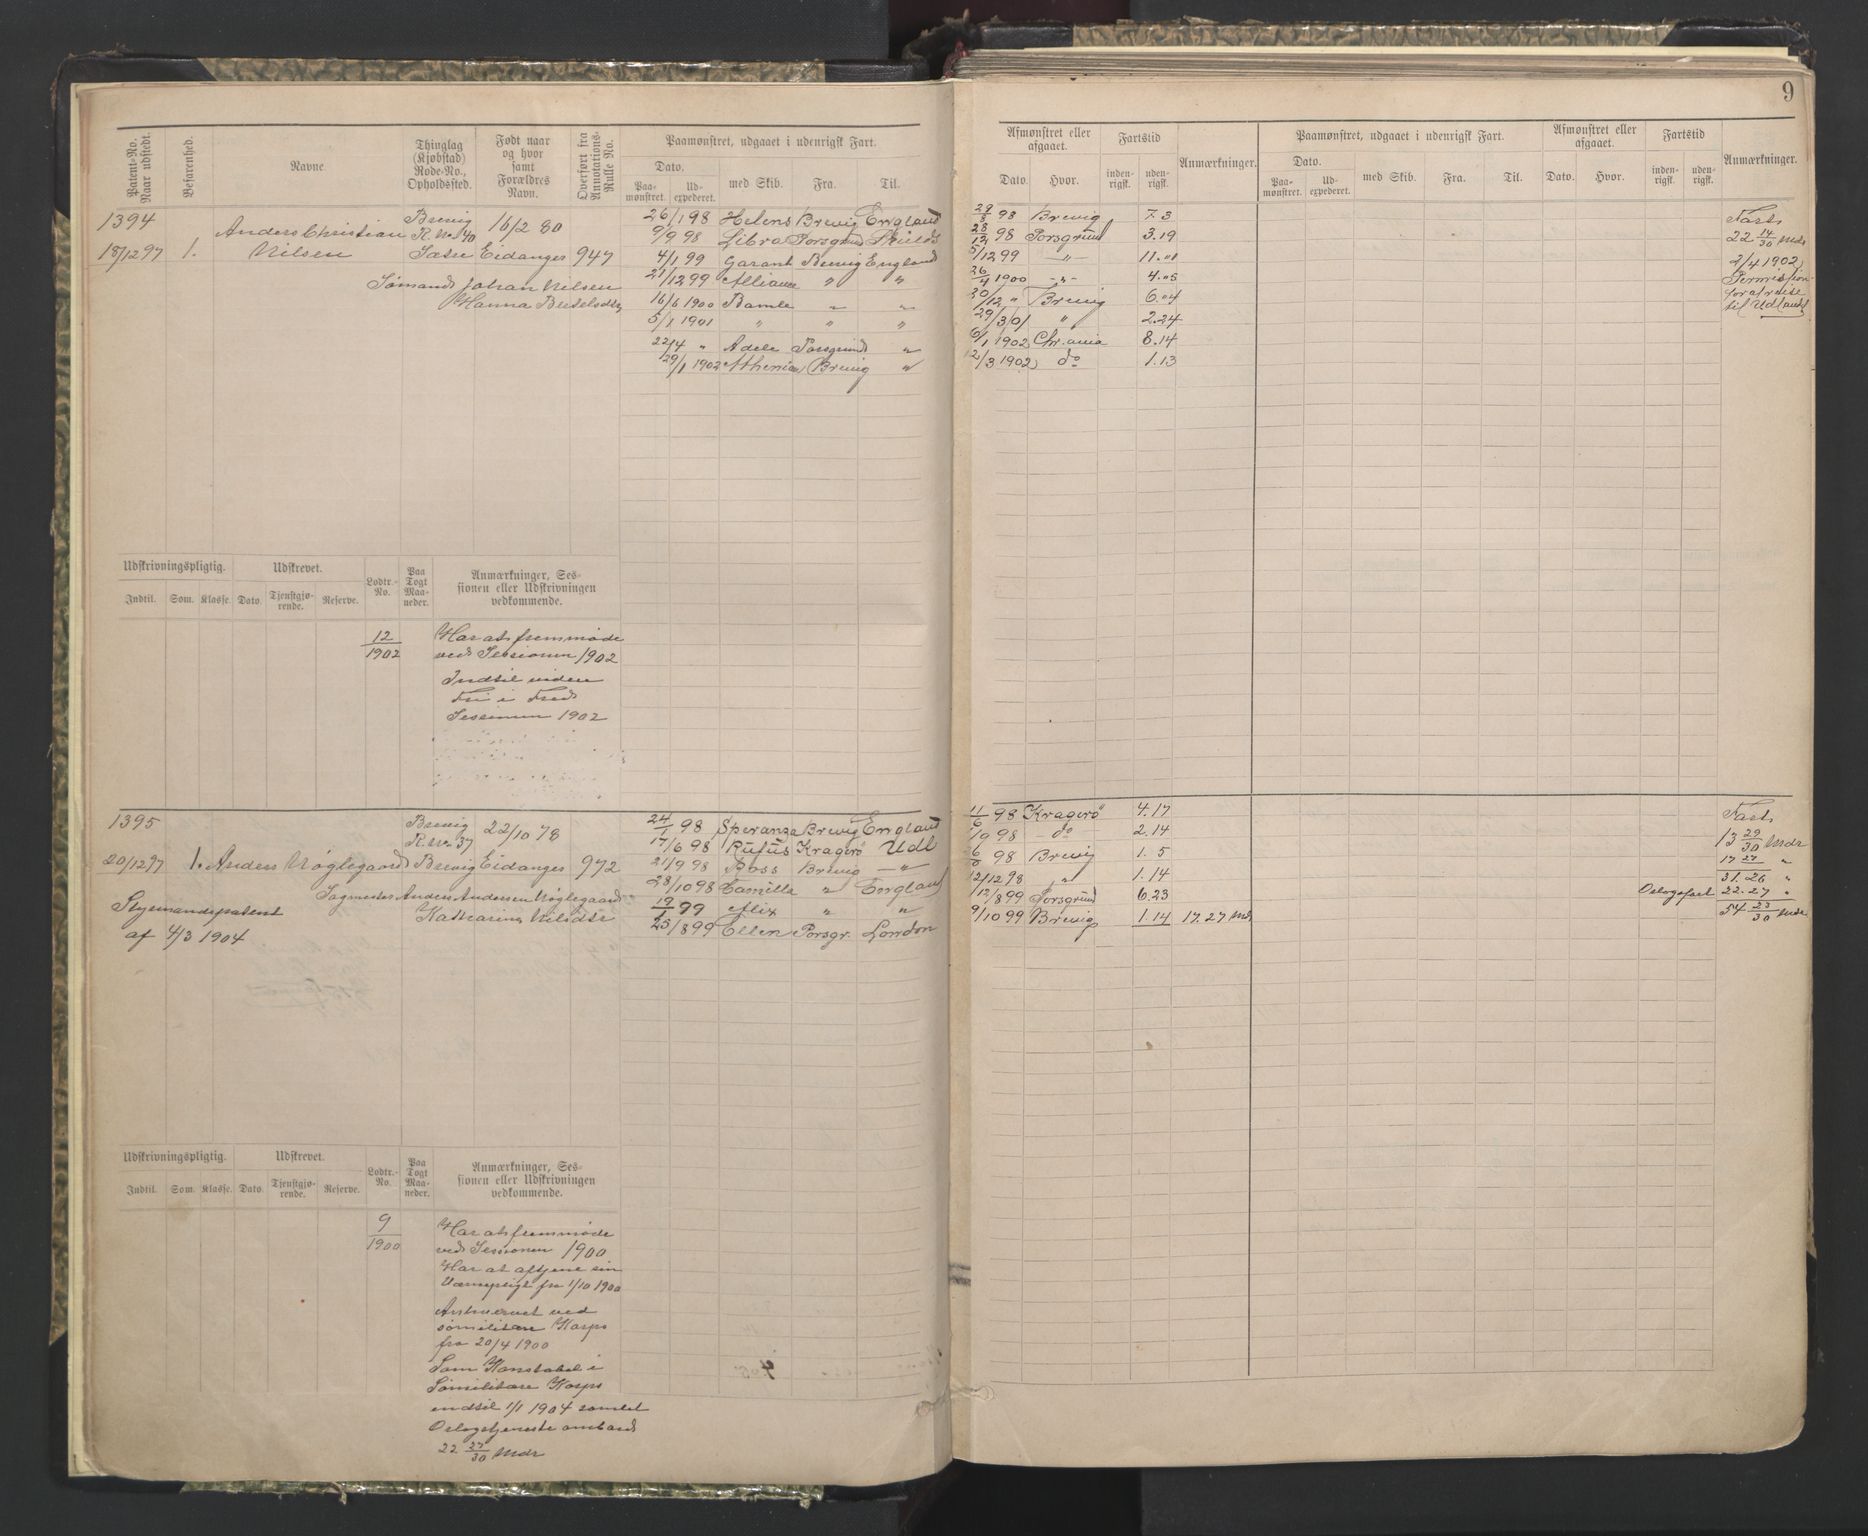 9
Patent-No. Naar udstedt.
Befarenhed.
Navne
Thinglag (Kjøbstad) Rode-No., Opholdssted.
Født naar og hvor samt Forældres Navn.
Overført fra Annotations-Rulle No.
Paamønstret, udgaaet i udenrigsk Fart.
Dato.
Paa-mønstret.
Ud-expederet.
med Skib.
Fra.
Til.
Afmønstret eller afgaaet.
Dato.
Hvor.
Fartstid
inden-rigsk.
uden-rigsk.
Anmærkninger.
Paamønstret, udgaaet i udenrigsk Fart.
Dato.
Paa-mønstret.
Ud-expederet.
med Skib.
Fra.
Til.
Afmønstret eller afgaaet.
Dato.
Hvor.
Fartstid
inden-rigsk.
uden-rigsk.
Anmærkninger.
1394
18/12 97 1.
Anders Christian
Nilsen
Brevig
R. No 40
16/2 80
Eidanger 947
Sømand Johan Nilsen
Hanna Bertelsdtr
26/1 98 Helens Brevig England
9/9 98 Libra Porsgrund Shields
4/1 99 Garant Brevig England
21/12 99 Alliance " "
16/6 1900 Bamle " "
5/1 1901 " " "
22/4 " Adele Porsgrund "
29/1 1902 Athenian Brevig "
29/8 98 Brevig 7.3
28/12 98 Porsgrund 3.19
5/12 99 -"- 11.01
26/4 1900 -"- 4.05
20/12 " Brevig 6.04
29/3 01 " 2.24
6/1 1902 Chr.ania 8.14
12/3 1902 do 1.13
Fart
22 14/30 Mdr
2/4 1902
Permission
for afreise
til Udlandet
Udskrivningspligtig.
Indtil.
Som.
Klasse.
Udskrevet.
Dato.
Tjenstgjø-rende.
Reserve.
Lodtr.-No.
Paa Togt Maa-neder.
Anmærkninger, Ses-
sionen eller Udskrivningen
vedkommende.
12/1902
Har at fremmøde
ved Sessionen 1902
Indtil viden
Fri i Fred
Sessionen 1902
1395
20/12 97 1. Anders Nøglegaard
Styrmandspatent
af 4/3 1904
Brevig
R. No 37
Brevig
22/10 78
Eidanger 972
Sagmester Anders Andersen Nøglegaard
Katharina Nilsdtr
24/1 98 Speranza Brevig England
17/6 98 Rufus Kragerø Udl
21/9 98 Ross Brevig -"-
28/10 98 Camilla " England
19/1 99 Alix " "
25/8 99 Ellen Porsgr. London
11/6 98 Kragerø 4.17
/9 98 do 2.14
98 Brevig 1.5
12/12 98 " 1.14
12/8 99 Porsgrund 6.23
9/10 99 Brevig 1.14 17.27 Md.
Fart
13 29/30 Mdr
17 27 "
31.26 "
Orlogsfart 22.27 "
54 23/30 Mdr
Udskrivningspligtig.
Indtil.
Som.
Klasse.
Udskrevet.
Dato.
Tjenstgjø-rende.
Reserve.
Lodtr.-No.
Paa Togt Maa-neder.
Anmærkninger, Ses-
sionen eller Udskrivningen
vedkommende.
9/1900
Har at fremmøde
ved Sessionen 1900
Har at aftjene sin
Værnepligt fra 1/10 1900
Antaget ved
sømilitære Korps
fra 20/4 1900
Som Konstabel i
Sømilitære Korps
indtil 1/1 1904 samlet
Orlogstjeneste ombord
22 27/30 Mdr